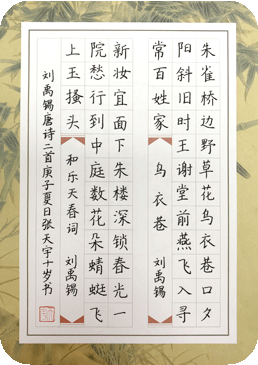 朱雀桥边野草花乌衣巷口夕
阳斜旧时王谢堂前燕飞入寻
常百姓家 乌衣巷 刘禹锡
新妆宜面下朱楼深锁春光一
院愁行到中庭数花朵蜻蜓飞
上玉搔头 和乐天春词 刘禹锡
刘禹锡唐诗二首庚子夏日张天宇十岁书